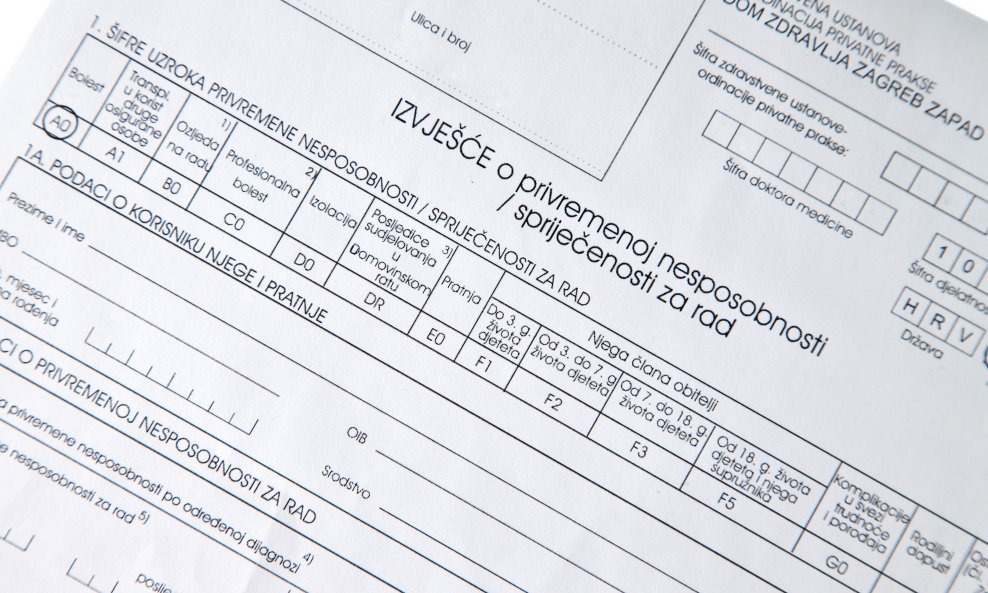 Ulica i broj
VENA USTANOVA
DINACIJA PRIVATNE PRAKSE
DOM ZDRAVLJA ZAGREB ZAPAD
Šifra zdravstvene ustanove-
ordinacije privatne prakse:
Šifra doktora medicine
1 0
Šifra djelatnos
H R V
Država
IZVJEŠĆE o privremenoj nesposobnosti
/ spriječenosti za rad
1. ŠIFRE UZROKA PRIVREMENE NESPOSOBNOSTI / SPRIJEČENOSTI ZA RAD
Bolest
Transpl.
u korist
druge
osigurane
osobe
Ozljeda 1)
na radu
Profesionalna 2)
bolest
Izolacija
Posljedice
sudjelovanja
u
Domovinskom
ratu
3)
Pratnja
Njega člana obitelji
Do 3. g.
života
djeteta
Od 3. do 7. g
života djeteta
Od 7. do 18. g.
života djeteta
Od 18. g. života
djeteta i njega
supružnika
Komplikacije
u svezi
trudnoće
i porođaja
Rodiljni
dopust
A0
A1
B0
C0
D0
DR
E0
F1
F2
F3
F5
G0
1A. PODACI O KORISNIKU NJEGE I PRATNJE
Prezime i ime
MBO
mjesec i
na rođenja
OIB
Srodstvo
CI O PRIVREMENOJ NESPOSOBNOSTI ZA RAD
a privremene nesposobnosti po određenoj dijagnozi 4)
e nesposobnosti za rad 5)
poslje